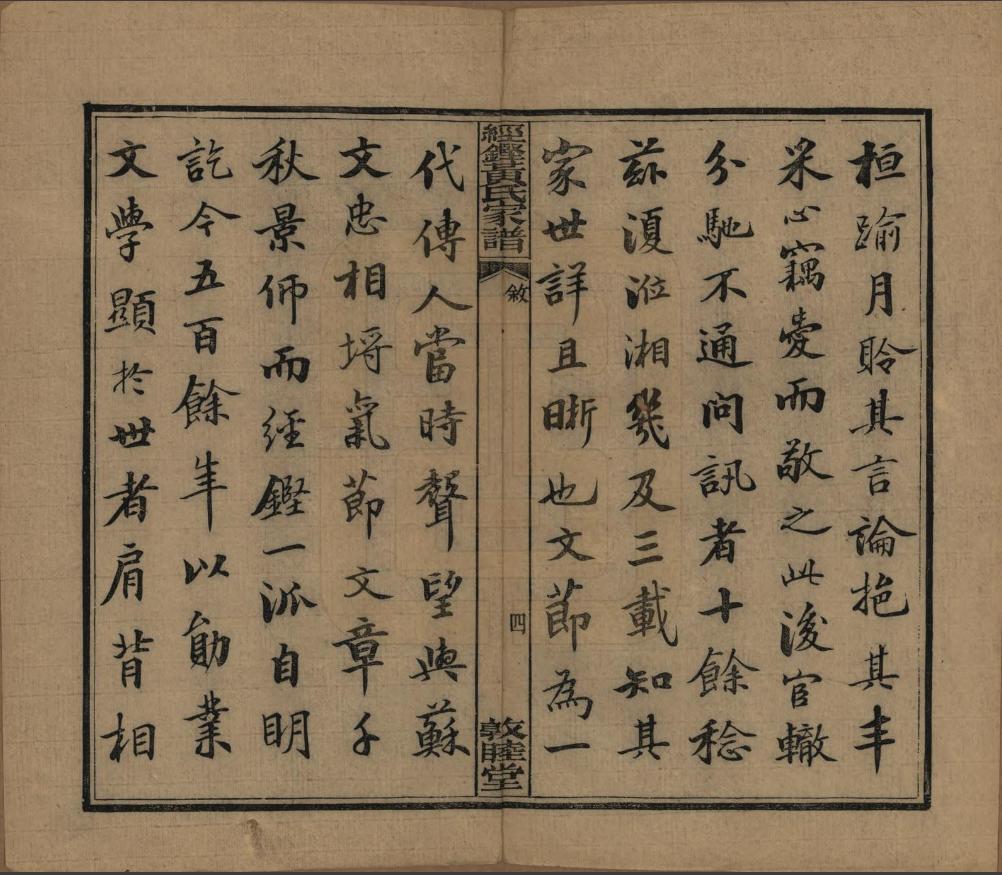 桓踰月聆其言論挹其丰
采心竊愛而敬之此後官轍
分馳不通問訊者十餘稔
茲復涖湘幾及三載知其
家世詳且晰也文節為一
經鏗黃氏家譜
敘
四
敦睦堂
代傳人當時聲望與蘇
文忠相埒氣節文章千
秋景仰而經鏗一派自明
訖今五百餘年以勛業
文學顯於世者肩背相